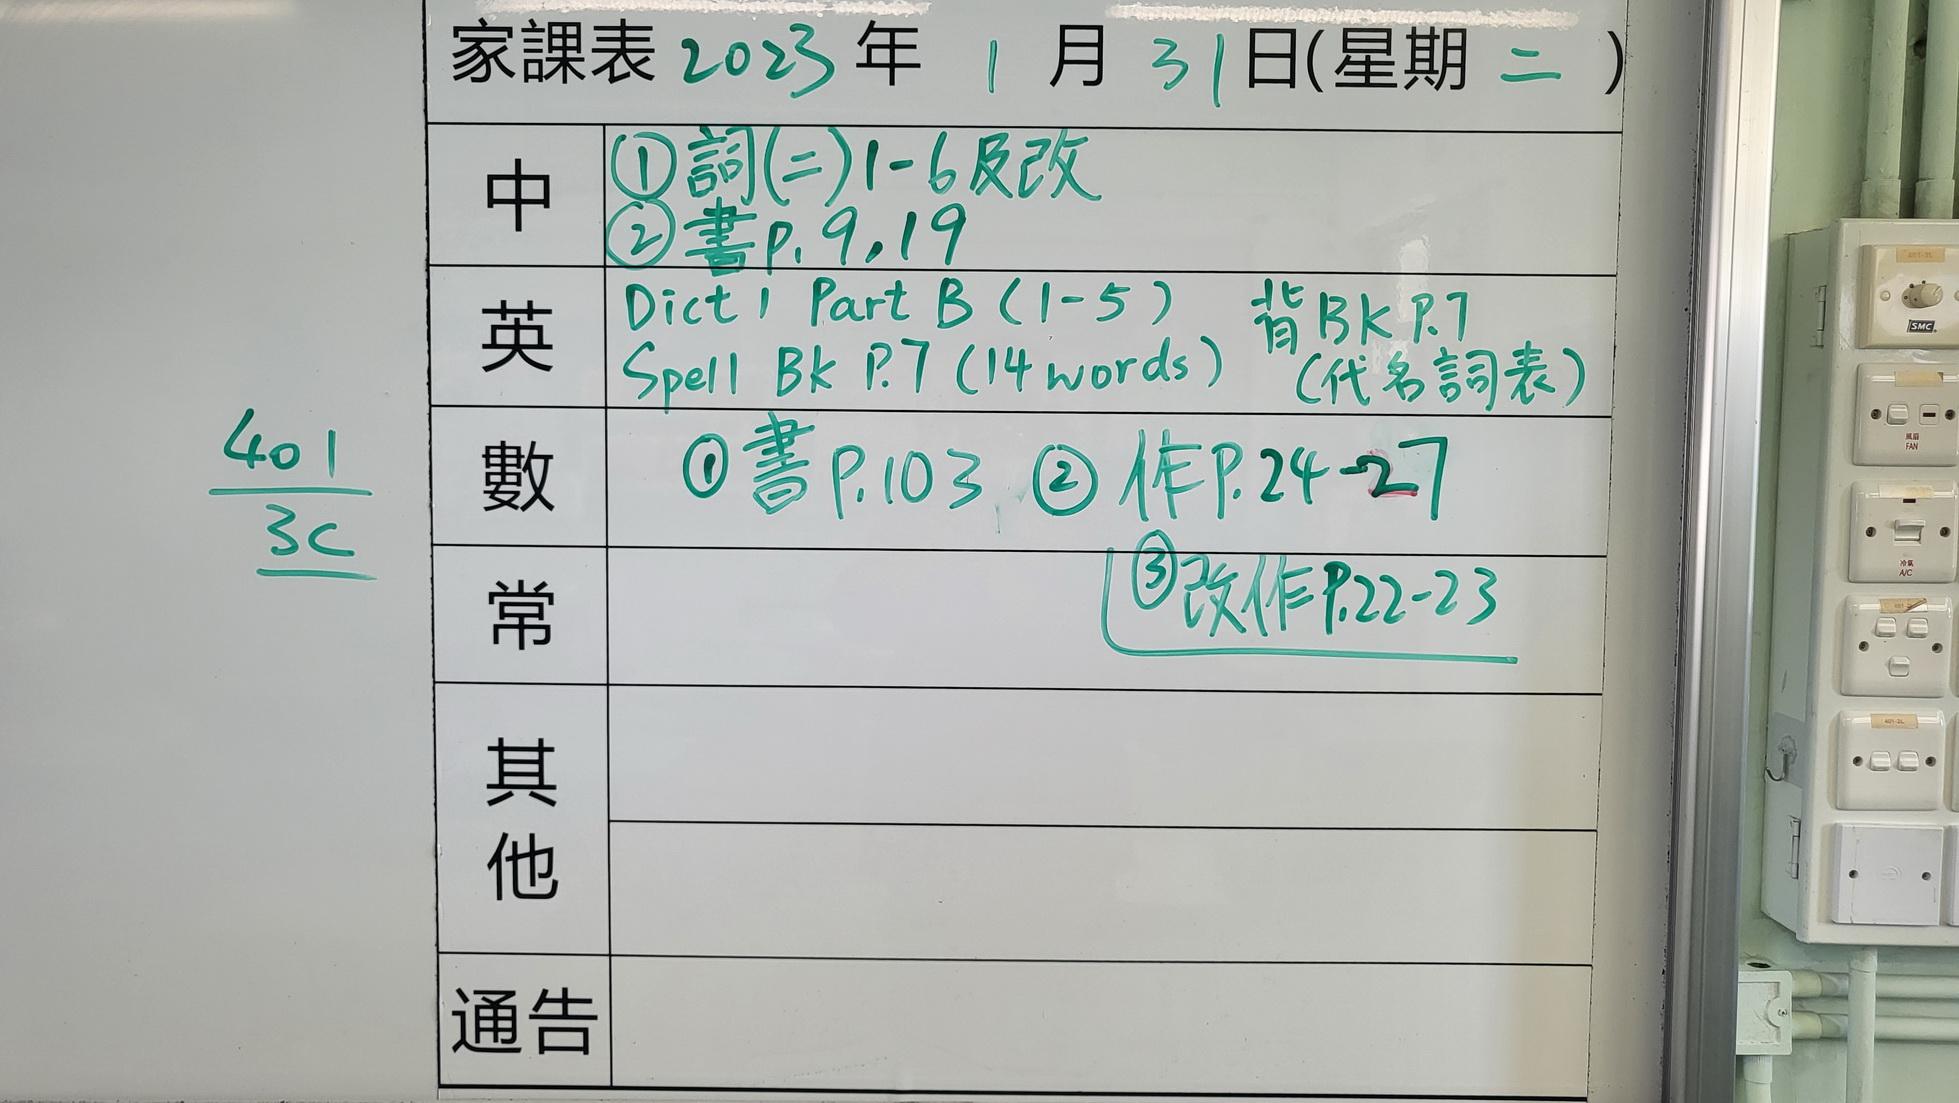 家課表 2023 年 1 月 31 日(星期 二 )
中
①詞(二)1-6及改
②書p.9,19
英
Dict 1 Part B (1-5) 背BK P.7
Spell BK P.7 (14 words) (代名詞表)
數
①書P.103 ②作P.24-27
③改作P.22-23
常
其他
通告
401
3C
SMC
風扇
FAN
冷氣
A/C